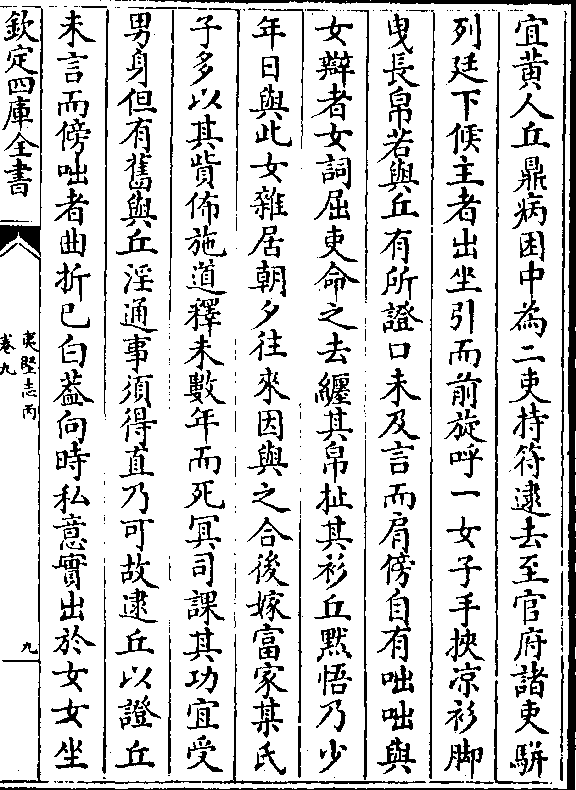 宜黄人丘鼎病困中為二吏持符逮去至官府諸吏駢
列廷下候主者出坐引而前旋呼一女子手挾凉衫脚
曳長帛若與丘有所證口未及言而肩傍自有咄咄與
女辯者女詞屈吏命之去纏其帛扯其衫丘黙悟乃少
年日與此女雜居朝夕往來因與之合後嫁富家某氏
子多以其貲佈施道釋未數年而死冥司課其功宜受
男身但有舊與丘淫通事須得直乃可故逮丘以證丘
未言而傍咄者曲折已白葢向時私意實出於女女坐
欽定四庫全書
夷堅志丙
卷九
九